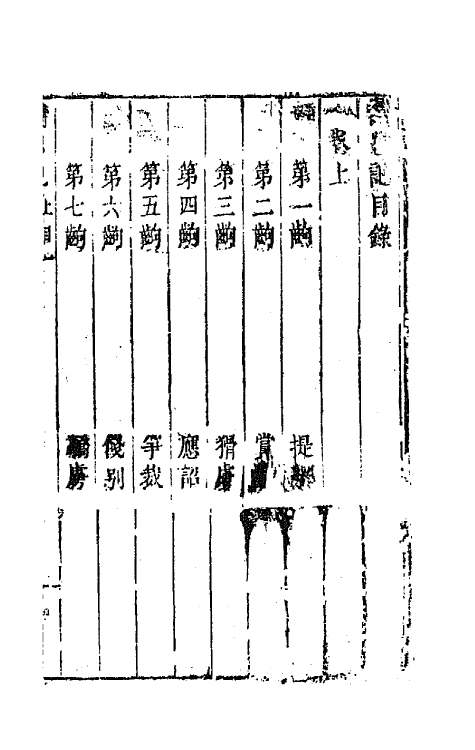 記目錄
卷上
第一齣 提
第二齣 賞
第三齣 猾虜
第四齣 應詔
第五齣 爭裁
第六齣 餞別
第七齣 虜